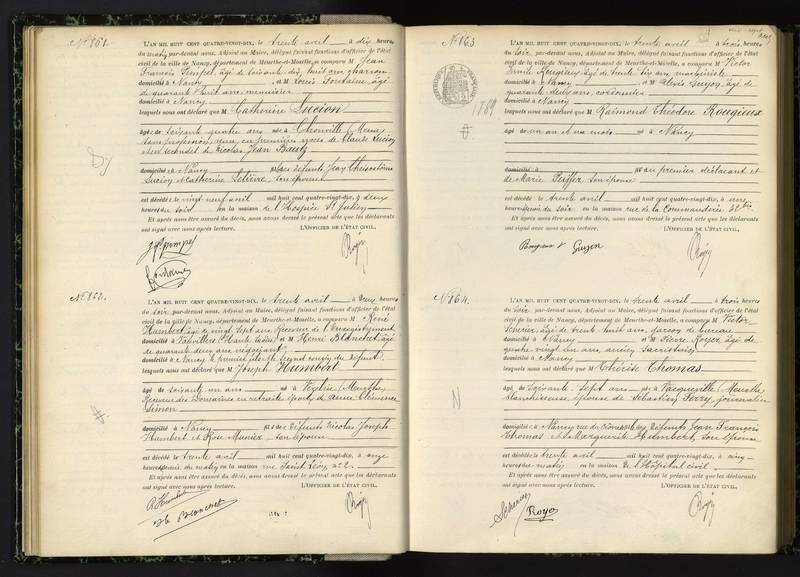 N° 161.
L'AN MIL HUIT CENT QUATRE-VINGT-DIX, le trente avril à dix heures
du matin par-devant nous, Adjoint au Maire, délégué faisant fonctions d'officier de l'état
civil de la ville de Nancy, département de Meurthe-et-Moselle, a comparu M Jean
François âgé de soixante dix huit ans charron
domicilié à Nancy et M Louis Fontaine âgé
de quarante huit ans, menuisier
domicilié à Nancy
lesquels nous ont déclaré que M Catherine Lucion
âgée de soixante quatre ans née à Chonville (Meuse)
sans profession, veuve en premières noces de Claude
et en secondes de Nicolas Jean
domiciliée à Nancy fille des défunts Jean
Lucion et Catherine Lelièvre, son épouse
est décédée le vingt neuf avril mil huit cent quatre-vingt-dix, à deux
heures du soir en la maison de l'Hospice St Julien
Et après nous être assuré du décès, nous avons dressé le présent acte que les déclarants
ont signé avec nous après lecture. L'OFFICIER DE L'ÉTAT CIVIL,
Fontaine
N° 162.
L'AN MIL HUIT CENT QUATRE-VINGT-DIX, le trente avril à deux heures
du soir par-devant nous, Adjoint au Maire, délégué faisant fonctions d'officier de l'état
civil de la ville de Nancy, département de Meurthe-et-Moselle, a comparu M René
Humbert âgé de vingt sept ans Receveur de l'Enregistrement
domicilié à (Haute Saône) et M Henri Blanchet âgé
de quarante deux ans négociant
domicilié à Nancy, le premier fils, le second cousin du défunt
lesquels nous ont déclaré que M Joseph Humbert
âgé de soixante un ans né à Vézelise (Meurthe)
Receveur des Domaines en retraite époux de Anne Clémence
Simon
domicilié à Nancy fils des défunts Nicolas Joseph
Humbert et Rose Munier son épouse
est décédé le trente avril mil huit cent quatre-vingt-dix, à onze
heures du matin en la maison rue Saint Léon, n° 2.
Et après nous être assuré du décès, nous avons dressé le présent acte que les déclarants
ont signé avec nous après lecture. L'OFFICIER DE L'ÉTAT CIVIL,
R Humbert
H Blanchet
N° 163
L'AN MIL HUIT CENT QUATRE-VINGT-DIX, le trente avril à trois heures
du soir par-devant nous, Adjoint au Maire, délégué faisant fonctions d'officier de l'état
civil de la ville de Nancy, département de Meurthe-et-Moselle, a comparu M Victor
Emile Rougieux âgé de trente six ans,
domicilié à Nancy et M Alexis Guyon âgé de
quarante deux ans, cordonnier
domicilié à Nancy
lesquels nous ont déclaré que M Raimond Théodore Rougieux
1789
âgé de un an et un mois né à Nancy
domicilié à fils du premier déclarant et
de Marie Peiffer son épouse
est décédé le trente avril mil huit cent quatre-vingt-dix, à une
heure du soir en la maison rue de la Commanderie 32 bis
Et après nous être assuré du décès, nous avons dressé le présent acte que les déclarants
ont signé avec nous après lecture. L'OFFICIER DE L'ÉTAT CIVIL,
Rougieux V Guyon
N° 164.
L'AN MIL HUIT CENT QUATRE-VINGT-DIX, le trente avril à trois heures
du soir par-devant nous, Adjoint au Maire, délégué faisant fonctions d'officier de l'état
civil de la ville de Nancy, département de Meurthe-et-Moselle, a comparu M Victor
âgé de trente huit ans, garçon de bureau
domicilié à Nancy et M Pierre Royer âgé de
quatre vingt un ans, ancien sacristain
domicilié à Nancy
lesquels nous ont déclaré que M Thérèse Thomas
âgée de soixante sept ans née à Vacqueville (Meurthe)
blanchisseuse, épouse de Sébastien Ferry, journalier
domiciliée à Nancy fille des défunts Jean François
Thomas et Marguerite Humbert, son épouse
est décédée le trente avril mil huit cent quatre-vingt-dix, à cinq
heures du matin en la maison de l'Hôpital civil
Et après nous être assuré du décès, nous avons dressé le présent acte que les déclarants
ont signé avec nous après lecture. L'OFFICIER DE L'ÉTAT CIVIL,
Royer